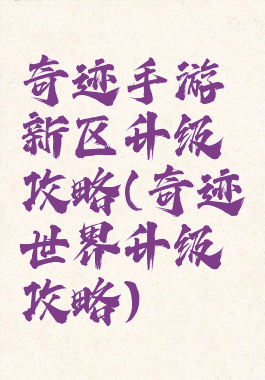 奇迹手游
新区升级
攻略(奇迹
世界升级
攻略)